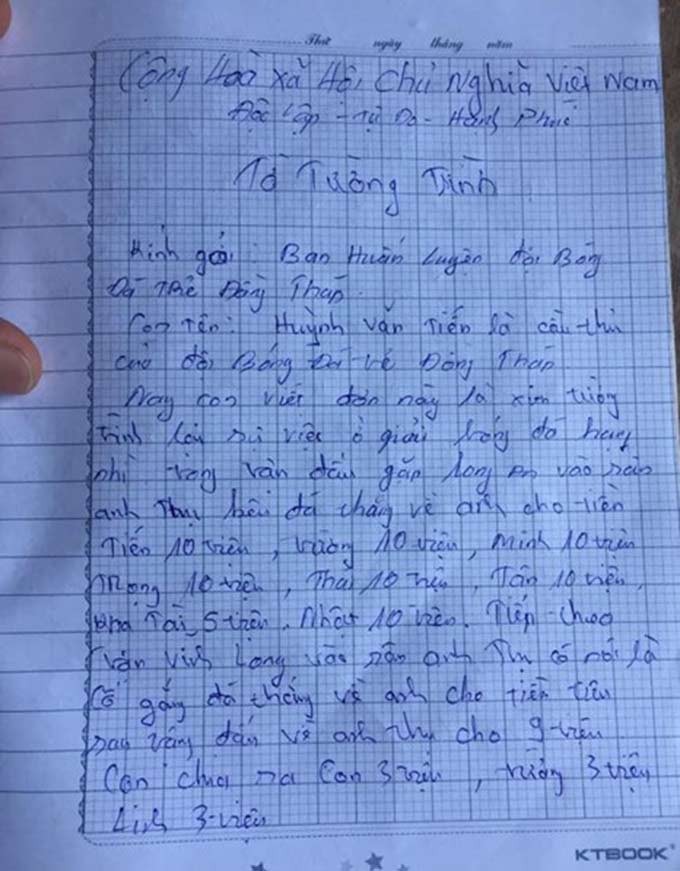 Thứ ngày tháng năm
Cộng Hoà xã Hội chủ Nghĩa Việt Nam
Độc Lập - Tự Do - Hạnh Phúc
Tờ Tường Trình
Kính gởi: Ban Huấn Luyện đội Bóng
Đá Trẻ Đồng Tháp.
Con tên: Huỳnh văn Tiến là cầu thủ
của đội Bóng Đá trẻ Đồng Tháp
Nay con viết đơn này là xin tường
trình lại sự việc ở giải bóng đá hạng
nhì trong trận đấu gặp long an vào sân
anh Thụ kêu đá thắng về anh cho tiền
Tiến 10 triệu, trường 10 triệu, Minh 10 triệu
Trọng 10 triệu, Thái 10 triệu, Tân 10 triệu,
kha Tài 5 triệu, Nhật 10 triệu. Tiếp theo
trận Vĩnh Long vào sân anh Thụ có nói là
Cố gắng đá thắng về anh cho tiền tiêu
sau trận đấu về anh thụ cho 9 triệu
Con chia ra Con 3 triệu, trường 3 triệu
Linh 3 triệu
KTBOOK